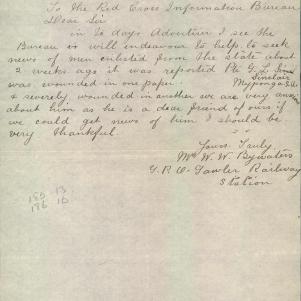 To the Red Cross Information Bureau
Dear Sir
in to days Advertiser I see the
Bureau is will endeavour to help to seek
news of men enlisted from the state about
2 weeks ago it was reported Pte G. L. Sinclair
was wounded in one paper Myponga S.A.
& severely wounded in another we are very anxious
about him as he is a dear friend of ours if
we could get news of him I should be
very thankful.
Yours Truly
Mrs W. W. Bywaters
G. P. O. Gawler Railway
Station
13
16